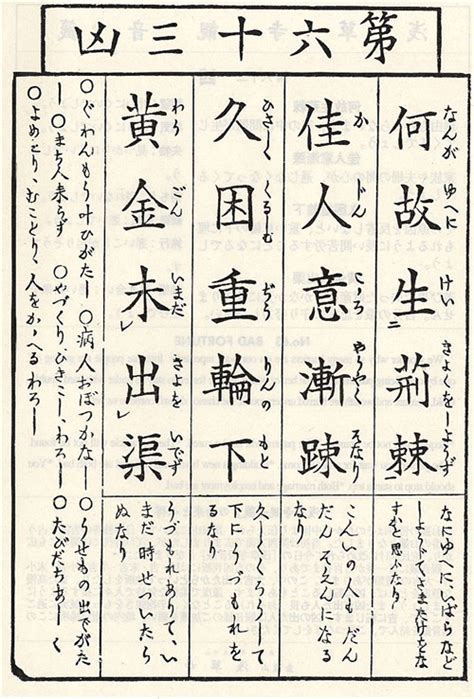 第六十三凶
何故生荊棘
なんがゆへに けい きよくをしようず
なにゆへに、いばらなど
すかと思ふなり
佳人意漸踈
か じん こころ やうやく そなり
だんそゑんになる
なり
久困重輪下
ひさしく くるしむ ぢう りんの もと
久しくくろうして
下にうづもれを
るなり
黄金未出渠
わう ごん いまだ きよを いでず
うづもれありて、い
まだ時せついたら
ぬなり
○ぐわんもう叶ひがたし ○病人おぼつかなし ○うせもの出でがた
し ○まち人来らず ○やづくり、ひきこし、わろし ○たびだちあしく
○よめとり、むことり、人をかゝへるわろし